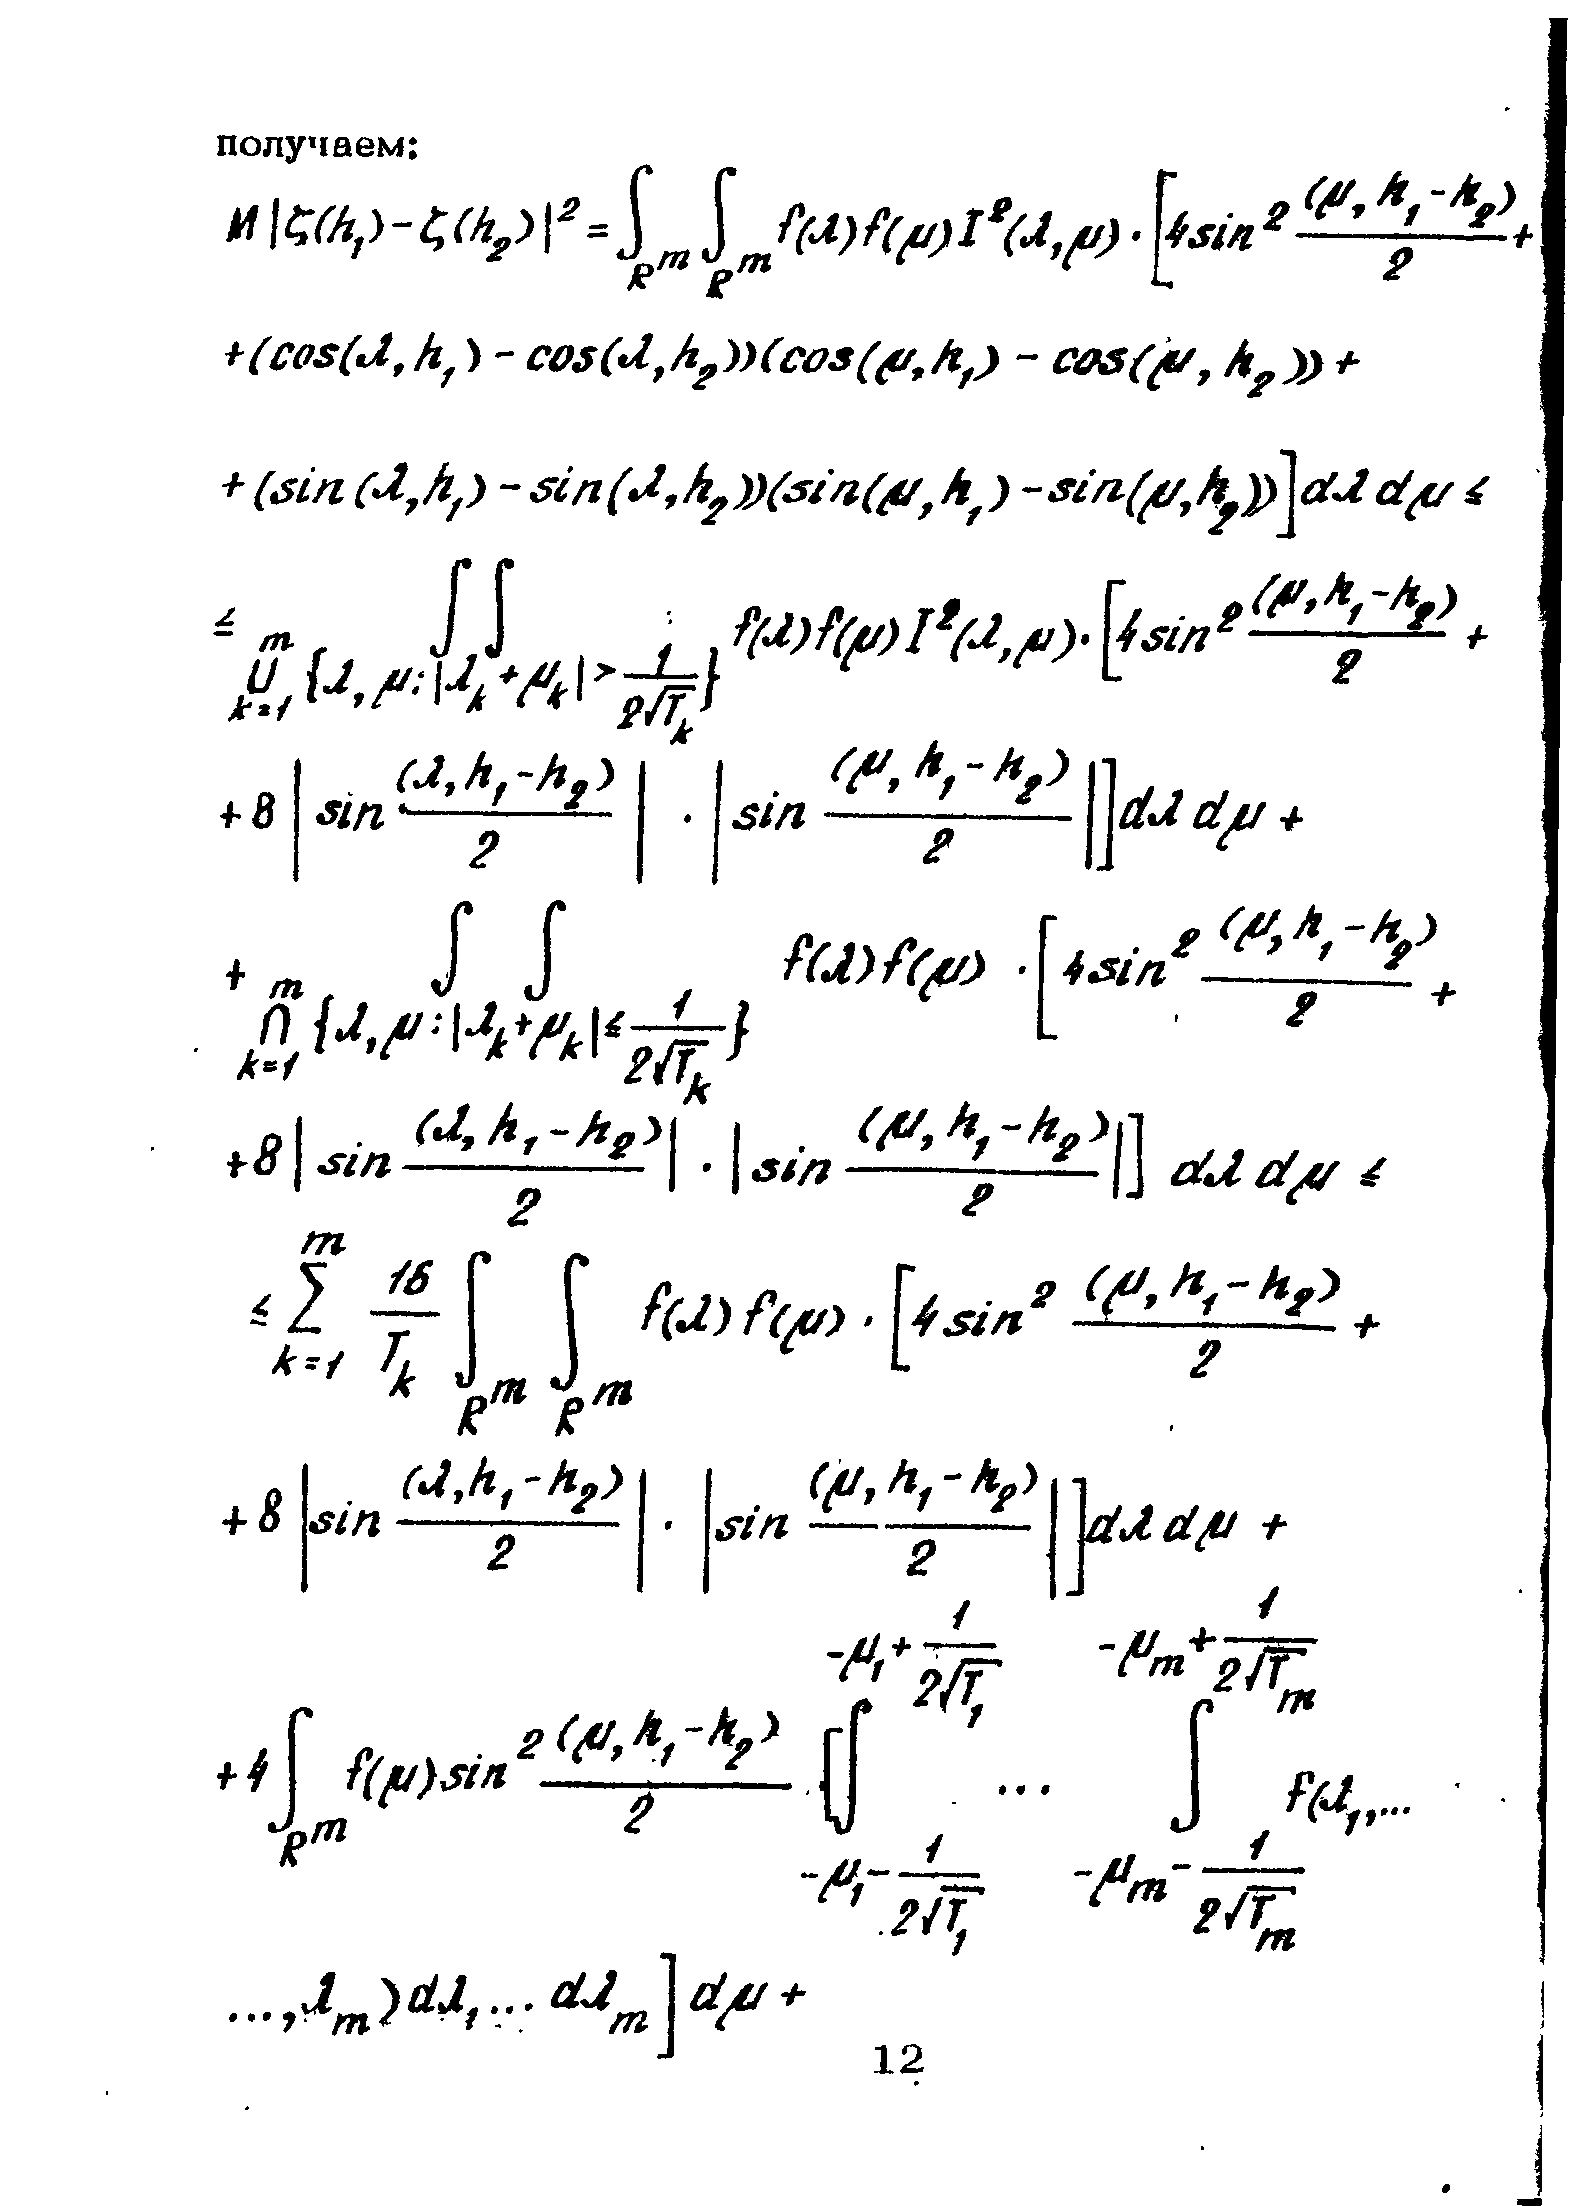 получаем:
$M|\zeta(h_1)-\zeta(h_2)|^2=\int_{R^m}\int_{R^m}f(\lambda)f(\mu)I^2(\lambda,\mu)\cdot\left[4\sin^2\frac{(\mu,h_1-h_2)}{2}+\right.$
$+(\cos(\lambda,h_1)-\cos(\lambda,h_2))(\cos(\mu,h_1)-\cos(\mu,h_2))+$
$\left.+(\sin(\lambda,h_1)-\sin(\lambda,h_2))(\sin(\mu,h_1)-\sin(\mu,h_2))\right]d\lambda\,d\mu\le$
$\le\int\int_{\bigcup_{k=1}^{m}\{\lambda,\mu:|\lambda_k+\mu_k|>\frac{1}{2\sqrt{T_k}}\}}f(\lambda)f(\mu)I^2(\lambda,\mu)\cdot\left[4\sin^2\frac{(\mu,h_1-h_2)}{2}+\right.$
$\left.+8\left|\sin\frac{(\lambda,h_1-h_2)}{2}\right|\cdot\left|\sin\frac{(\mu,h_1-h_2)}{2}\right|\right]d\lambda\,d\mu+$
$+\int\int_{\bigcap_{k=1}^{m}\{\lambda,\mu:|\lambda_k+\mu_k|\le\frac{1}{2\sqrt{T_k}}\}}f(\lambda)f(\mu)\cdot\left[4\sin^2\frac{(\mu,h_1-h_2)}{2}+\right.$
$\left.+8\left|\sin\frac{(\lambda,h_1-h_2)}{2}\right|\cdot\left|\sin\frac{(\mu,h_1-h_2)}{2}\right|\right]d\lambda\,d\mu\le$
$\le\sum_{k=1}^{m}\frac{16}{T_k}\int_{R^m}\int_{R^m}f(\lambda)f(\mu)\cdot\left[4\sin^2\frac{(\mu,h_1-h_2)}{2}+\right.$
$\left.+8\left|\sin\frac{(\lambda,h_1-h_2)}{2}\right|\cdot\left|\sin\frac{(\mu,h_1-h_2)}{2}\right|\right]d\lambda\,d\mu+$
$+4\int_{R^m}f(\mu)\sin^2\frac{(\mu,h_1-h_2)}{2}\cdot\left[\int_{-\mu_1-\frac{1}{2\sqrt{T_1}}}^{-\mu_1+\frac{1}{2\sqrt{T_1}}}\dots\int_{-\mu_m-\frac{1}{2\sqrt{T_m}}}^{-\mu_m+\frac{1}{2\sqrt{T_m}}}f(\lambda_1,\dots\right.$
$\left.\dots,\lambda_m)d\lambda_1\dots d\lambda_m\right]d\mu+$
12